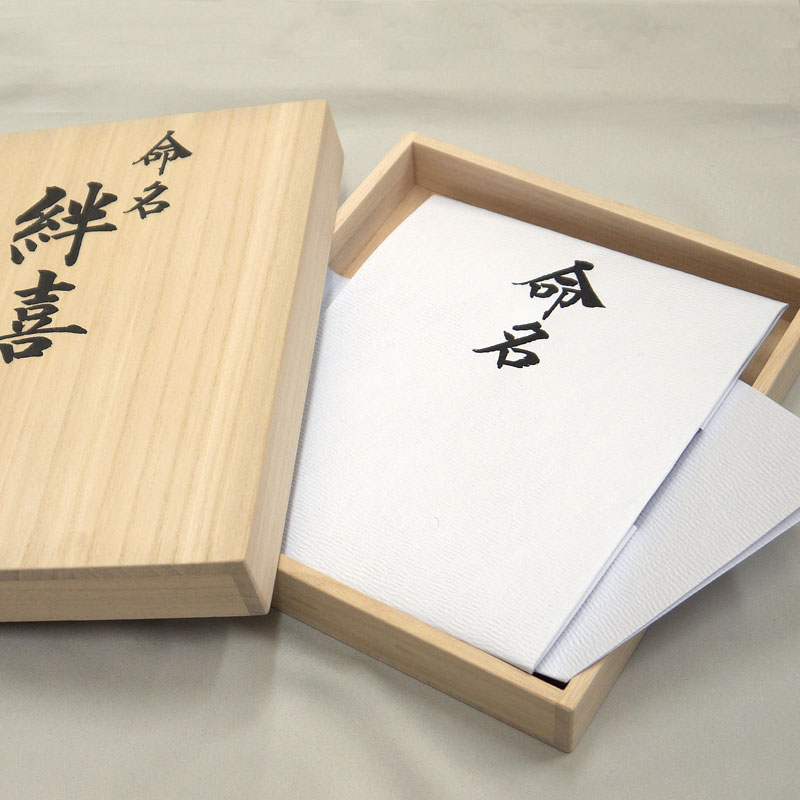 命名
絆喜
命名